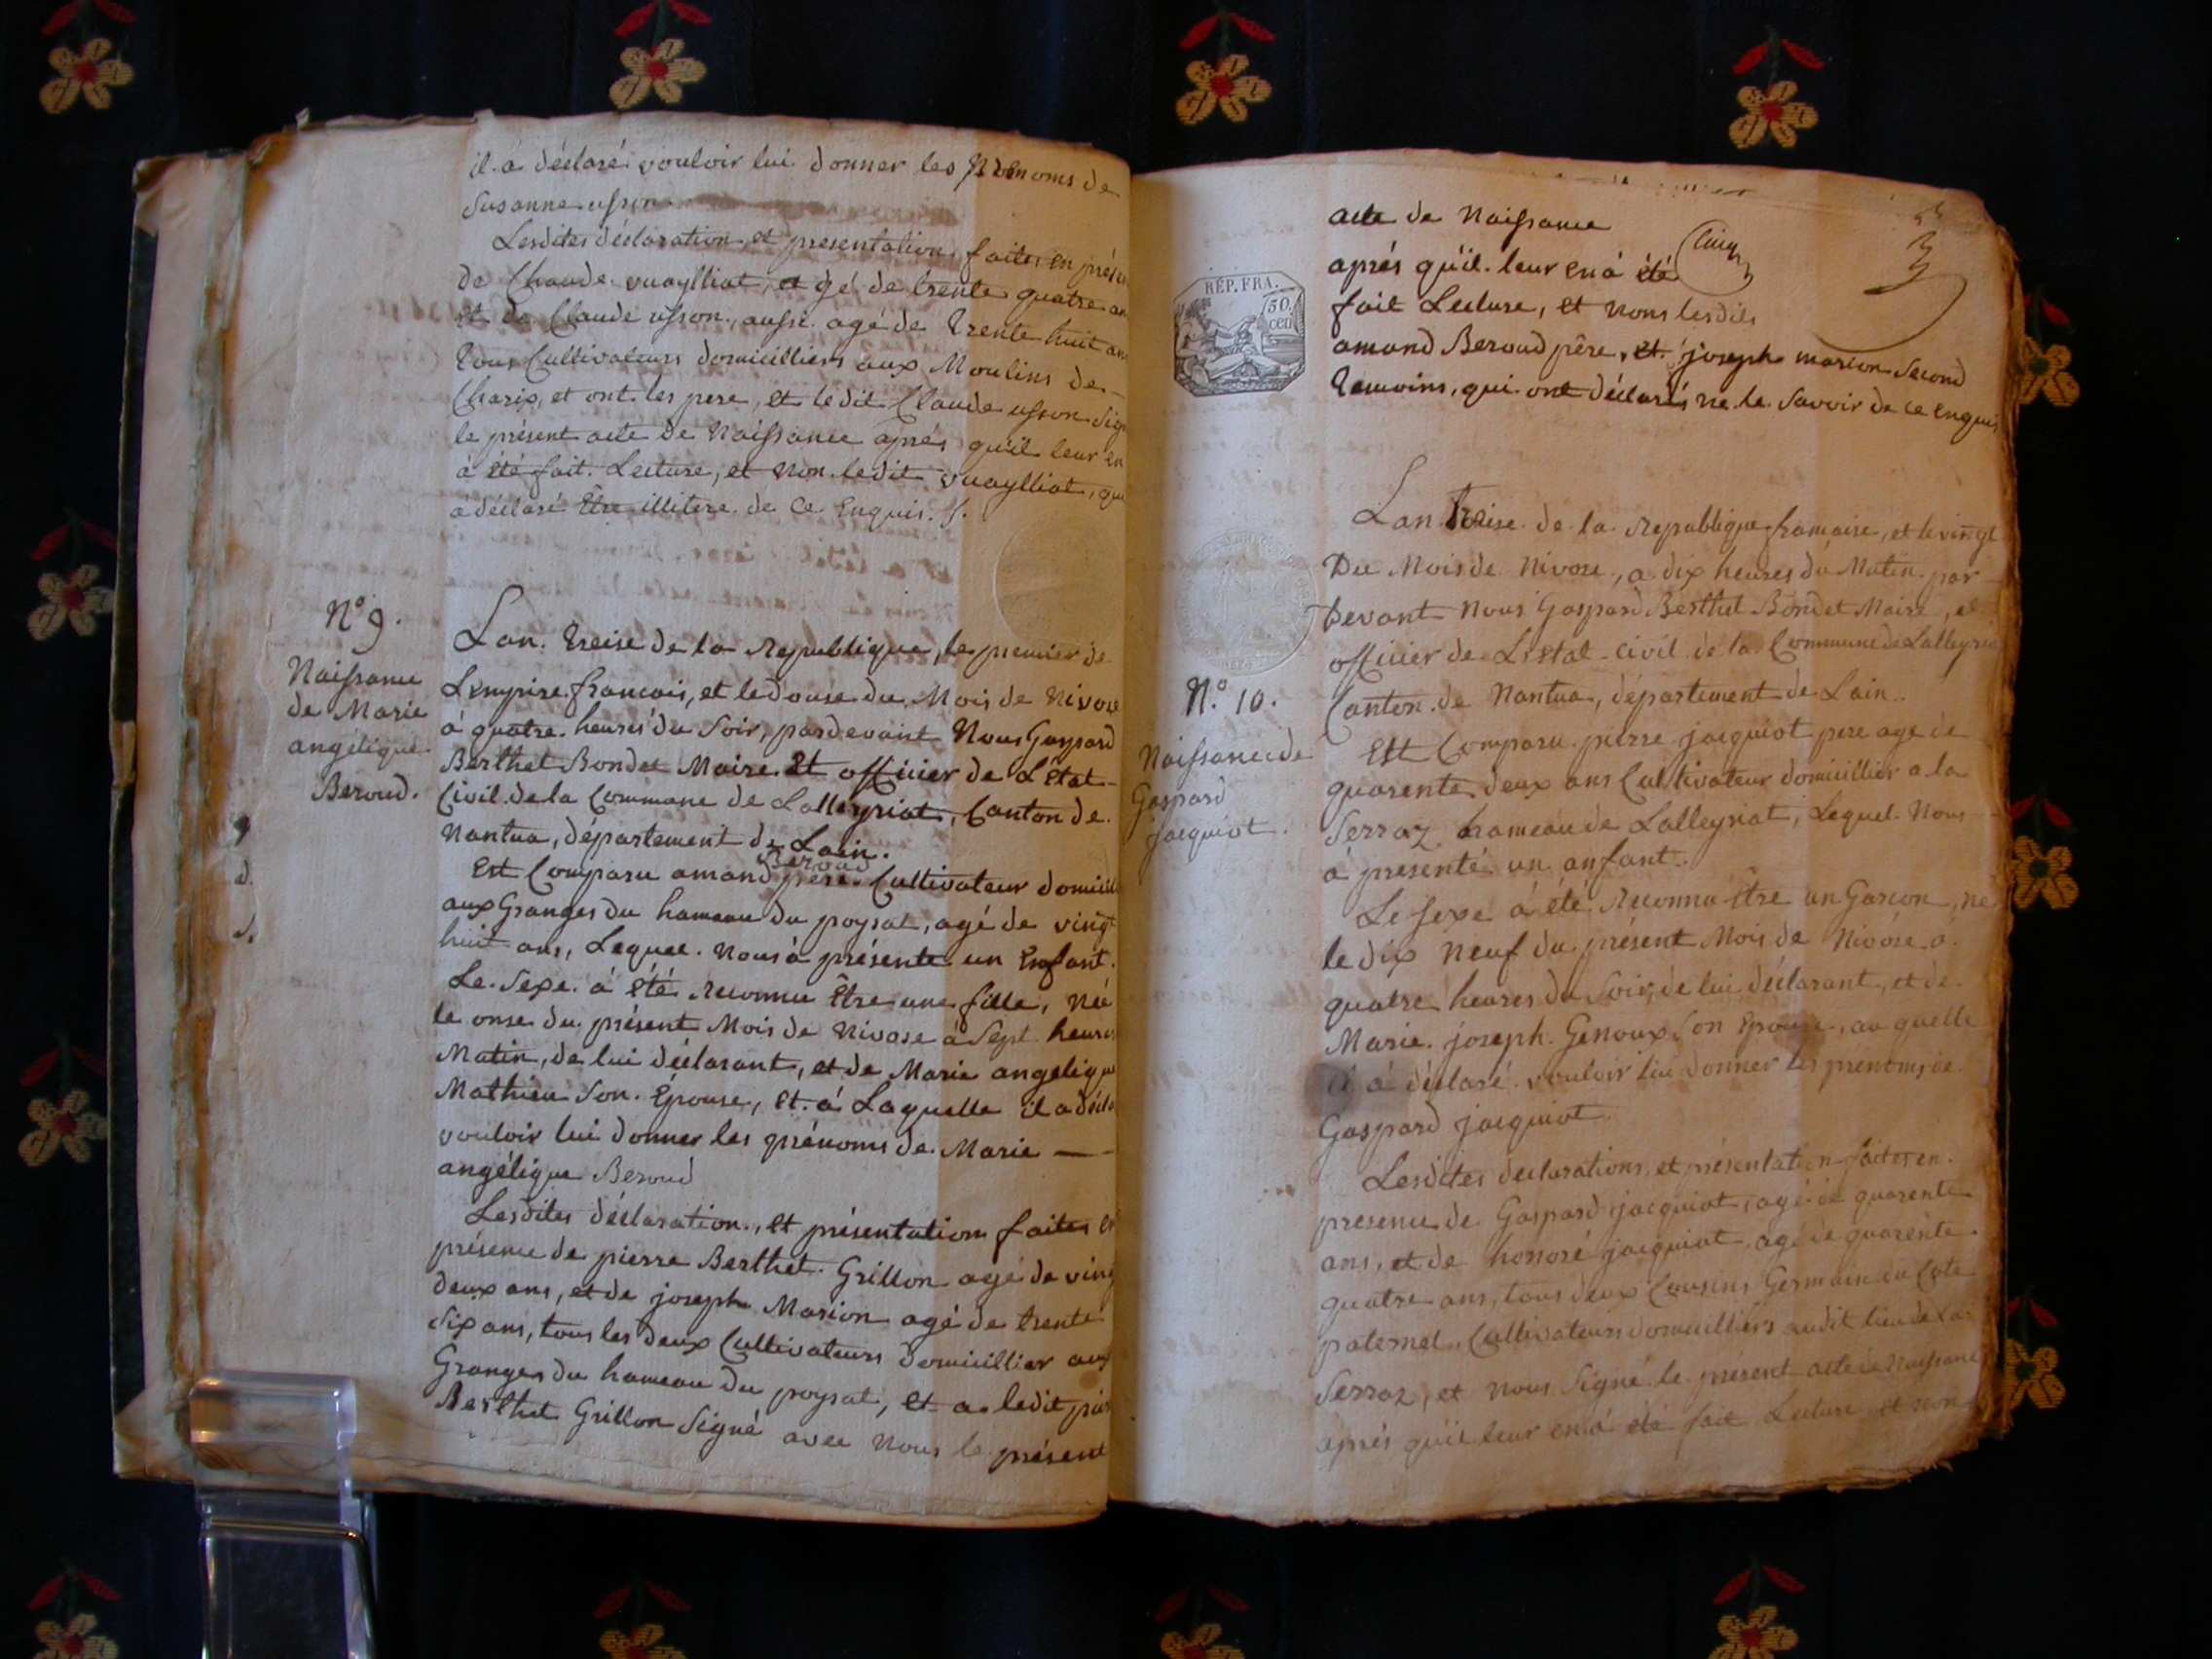 il a déclaré vouloir lui donner les prénoms de
Susanne usson
Lesdites déclaration, et presentation, faites en
de Claude vuaylliat, et gé de trente quatre
et de Claude usson, aussi agé de trente huit
tous Cultivateurs domicilliers aux Moulins de
Charix, et ont les pere, et ledit Claude usson
le présent acte de Naissance aprés qu'il leur en
à été fait Lecture, et Non ledit vuaylliat, qui
a déclaré Être illitere de Ce Enquis.
N.o 9.
Naissance
de Marie
angélique
Beroud.
Lan treise de la Republique, le premier de
L'empire francois, et le douse du Mois de Nivose
à quatre heures du Soir, pardevant Nous Gaspard
Berthet Bondet Maire Et officier de L'Etat
Civil de la Commune de Lalleyriat, Canton de
Nantua, département de Lain.
Beroud
Est Comparu amand pere Cultivateur
aux Granges du hameau du poysat, agé de vingt
huit ans, Lequel nous à présente un Enfant.
Le Sexe à été reconnu Être une fille, Née
le onse du présent Mois de Nivose à Sept heures
Matin, de lui déclarant, et de Marie angelique
Mathieu Son Épouse, Et à Laquelle il a
vouloir lui donner les prénoms de Marie —
angélique Beroud
Lesdites déclaration, Et présentation faites
présence de pierre Berthet Grillon agé de
deux ans, et de joseph Marion agé de trente
Six ans, tous les deux Cultivateurs domicillier aux
Granges du hameau du poysat, Et a ledit
Berthet Grillon Signé avec Nous le présent
acte de Naissance
aprés qu'il leur en à été
fait Lecture, et Nons lesdits
amand Beroud pêre, et joseph marion Second
temoins, qui ont déclarés ne le Savoir de ce enquis
Cinq
RÉP. FRA.
50
cen
Lan treise de la Republique francaise, et le vingt
Du Mois de Nivose, a dix heures du Matin par
Devant Nous Gaspard Berthet Bondet Maire, et
officier de L'Etat-civil de la Commune de Lalleyriat
Canton de Nantua, département de Lain.
N.o 10.
Naissance de
Gaspard
jacquiot.
Est Comparu pierre jacquiot pere age de
quarente deux ans Cultivateur domicillier a la
Serraz hameau de Lalleyriat, Lequel Nous
à presenté un anfant.
Le Sexe à été reconnu être un Garcon, né
le dix Neuf du présent Mois de Nivose à
quatre heures du Soir, de lui déclarant, et de
Marie joseph Genoux Son Epouse, au quelle
il à déclaré vouloir lui donner les prenoms de
Gaspard jacquiot
Lesdites declarations, et présentation faites en
presence de Gaspard jacquiot, agé de quarente
ans, et de honoré jacquiot, agé de quarente
quatre ans, tous deux Cousins Germain du Cote
paternel, Cultivateurs domicilliers audit lieu de La
Serraz, et Nous Signé le présent acte de Naissance
aprés qu'il leur en à été fait Lecture et non